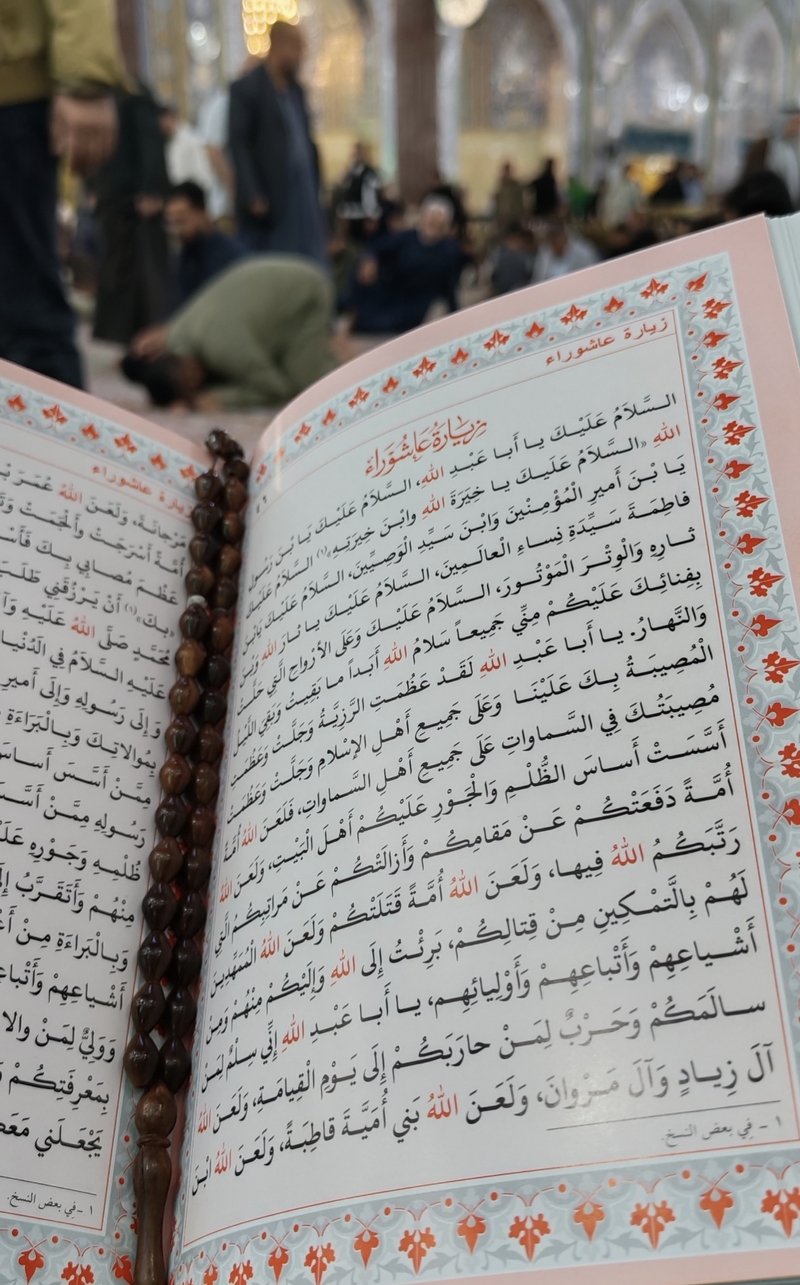 زيارة عاشوراء
زِيَارَةُ عَاشُوْرَاءَ
السَّلاَمُ عَلَيْكَ يا أَبا عَبْدِ اللهِ، السَّلاَمُ عَلَيْكَ يَا بْنَ رَسُولِ
اللهِ «السَّلاَمُ عَلَيْكَ يا خِيَرَةَ اللهِ وابْنَ خِيَرَتِهِ»(١) السَّلامُ عَلَيْكَ
يَا بْنَ أَمیرِ الْمُؤْمِنْينَ وَابْنَ سَيِّدِ الْوَصِيِّينَ، السَّلامُ عَلَيْكَ يَابْنَ
فاطِمَةَ سَيِّدَةِ نِساءِ الْعالَمِينَ، السَّلامُ عَلَيْكَ يا ثارَ اللهِ وَابْنَ
ثارِهِ وَالْوِتْرَ الْمَوْتُورَ، السَّلامُ عَلَيْكَ وَعَلَى الأَرْواحِ الَّتِي حَلَّتْ
بِفِنائِكَ عَلَيْكُمْ مِنِّي جَمِيعاً سَلامُ اللهِ أَبَداً ما بَقِيتُ وَبَقِيَ اللَّيْلُ
وَالنَّهارُ. يا أَبا عَبْدِ اللهِ لَقَدْ عَظُمَتِ الرَّزِيَّةُ وَجَلَّتْ وَعَظُمَتِ
الْمُصِيبَةُ بِكَ عَلَيْنَا وَعَلَى جَمِيعِ أَهْلِ الإسْلامِ وَجَلَّتْ وَعَظُمَتْ
مُصِيبَتُكَ فِي السَّماواتِ عَلَى جَمِيعِ أَهْلِ السَّماواتِ، فَلَعَنَ اللهُ أُمَّةً
أَسَّسَتْ أَساسَ الظُّلْمِ وَالْجَوْرِ عَلَيْكُمْ أَهْلَ الْبَيْتِ، وَلَعَنَ اللهُ
أُمَّةً دَفَعَتْكُمْ عَنْ مَقامِكُمْ وَأَزالَتْكُمْ عَنْ مَراتِبِكُمُ الَّتِي
رَتَّبَكُمُ اللهُ فِيها، وَلَعَنَ اللهُ أُمَّةً قَتَلَتْكُمْ وَلَعَنَ اللهُ الْمُمَهِّدِينَ
لَهُمْ بِالتَّمْكِينِ مِنْ قِتالِكُمْ، بَرِئْتُ إِلَى اللهِ وَإِلَيْكُمْ مِنْهُمْ وَمِنْ
أَشْياعِهِمْ وَأَتْباعِهِمْ وَأَوْلِيائِهِم، يا أَبا عَبْدِ اللهِ إِنِّي سِلْمٌ لِمَنْ
سالَمَكُمْ وَحَرْبٌ لِمَنْ حارَبَكُمْ إِلَى يَوْمِ الْقِيامَةِ، وَلَعَنَ اللهُ
آلَ زِيادٍ وَآلَ مَرْوانَ، وَلَعَنَ اللهُ بَنِي أُمَيَّةَ قاطِبَةً، وَلَعَنَ اللهُ ابْنَ
١ - في بعض النسخ.
زيارة عاشوراء
مَرْجانَةَ، وَلَعَنَ اللهُ عُمَرَ
أُمَّةً أَسْرَجَتْ وَأَلْجَمَتْ
عَظُمَ مُصابِي بِكَ
«بِكَ»(١) أَنْ يَرْزُقَنِي طَلَبَ
مُحَمَّدٍ صَلَّى اللهُ عَلَيْهِ وَآ
عَلَيْهِ السَّلامُ فِي الدُّنْيا
وَإِلَى رَسُولِهِ وَإِلَى أَمیرِ
بِمُوالاتِكَ وَبِالْبَراءَةِ
مِمَّنْ أَسَّسَ أَساسَ
رَسُولِهِ مِمَّنْ أَسَّسَ
ظُلْمِهِ وَجَوْرِهِ
مِنْهُمْ وَأَتَقَرَّبُ
وَبِالْبَراءَةِ مِنْ
أَشْياعِهِمْ وَأَتْباعِ
وَوَلِيٌّ لِمَنْ والا
بِمَعْرِفَتِكُمْ
يَجْعَلَنِي مَعَ
١ - في بعض النسخ.